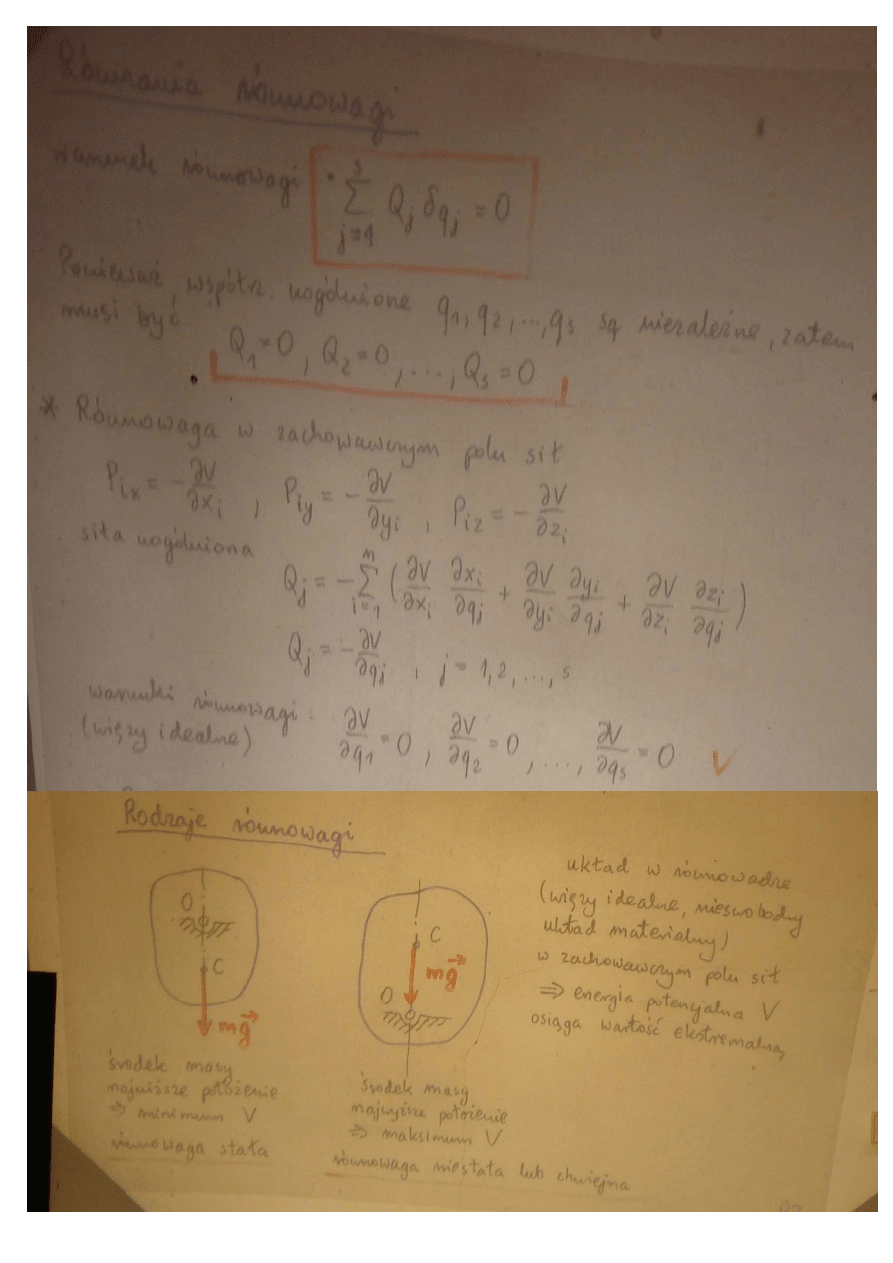 Równania równowagi
warunek równowagi
\sum_{j=1}^{s} Q_j δq_j = 0
Ponieważ współrz. uogólnione q_1, q_2, ..., q_s są niezależne, zatem
musi być
Q_1 = 0, Q_2 = 0, ..., Q_s = 0
* Równowaga w zachowawczym polu sił
P_{ix} = -\frac{∂V}{∂x_i}, P_{iy} = -\frac{∂V}{∂y_i}, P_{iz} = -\frac{∂V}{∂z_i}
siła uogólniona
Q_j = -\sum_{i=1}^{n} (\frac{∂V}{∂x_i} \frac{∂x_i}{∂q_j} + \frac{∂V}{∂y_i} \frac{∂y_i}{∂q_j} + \frac{∂V}{∂z_i} \frac{∂z_i}{∂q_j})
Q_j = -\frac{∂V}{∂q_j}, j = 1, 2, ..., s
warunki równowagi
(więzy idealne)
\frac{∂V}{∂q_1} = 0, \frac{∂V}{∂q_2} = 0, ..., \frac{∂V}{∂q_s} = 0 V
Rodzaje równowagi
O
C
m\vec{g}
środek masy
najniższe położenie
⇒ minimum V
równowaga stała
C
m\vec{g}
O
środek masy
najwyższe położenie
⇒ maksimum V
równowaga niestała lub chwiejna
układ w równowadze
(więzy idealne, nieswobodny
układ materialny)
w zachowawczym polu sił
⇒ energia potencjalna V
osiąga wartość ekstremalną